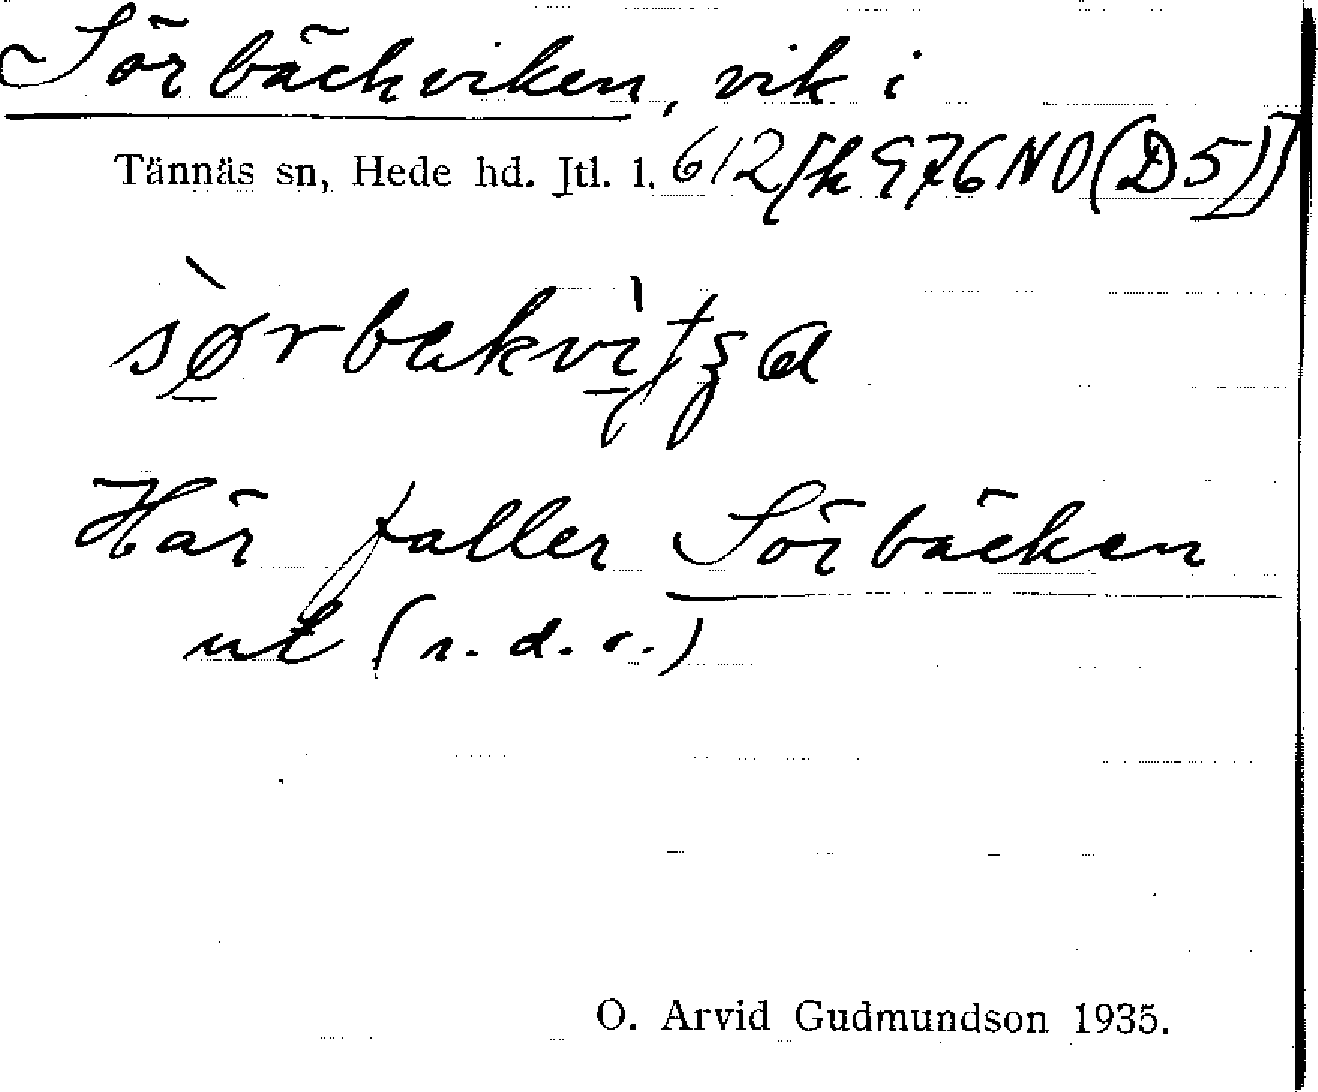 Sörbäckviken, vik i
Tännäs sn, Hede hd. Jtl. l. 612 [k 976 NO (D5)]
Här faller Sörbäcken
ut (s. d. o.)
O. Arvid Gudmundson 1935.